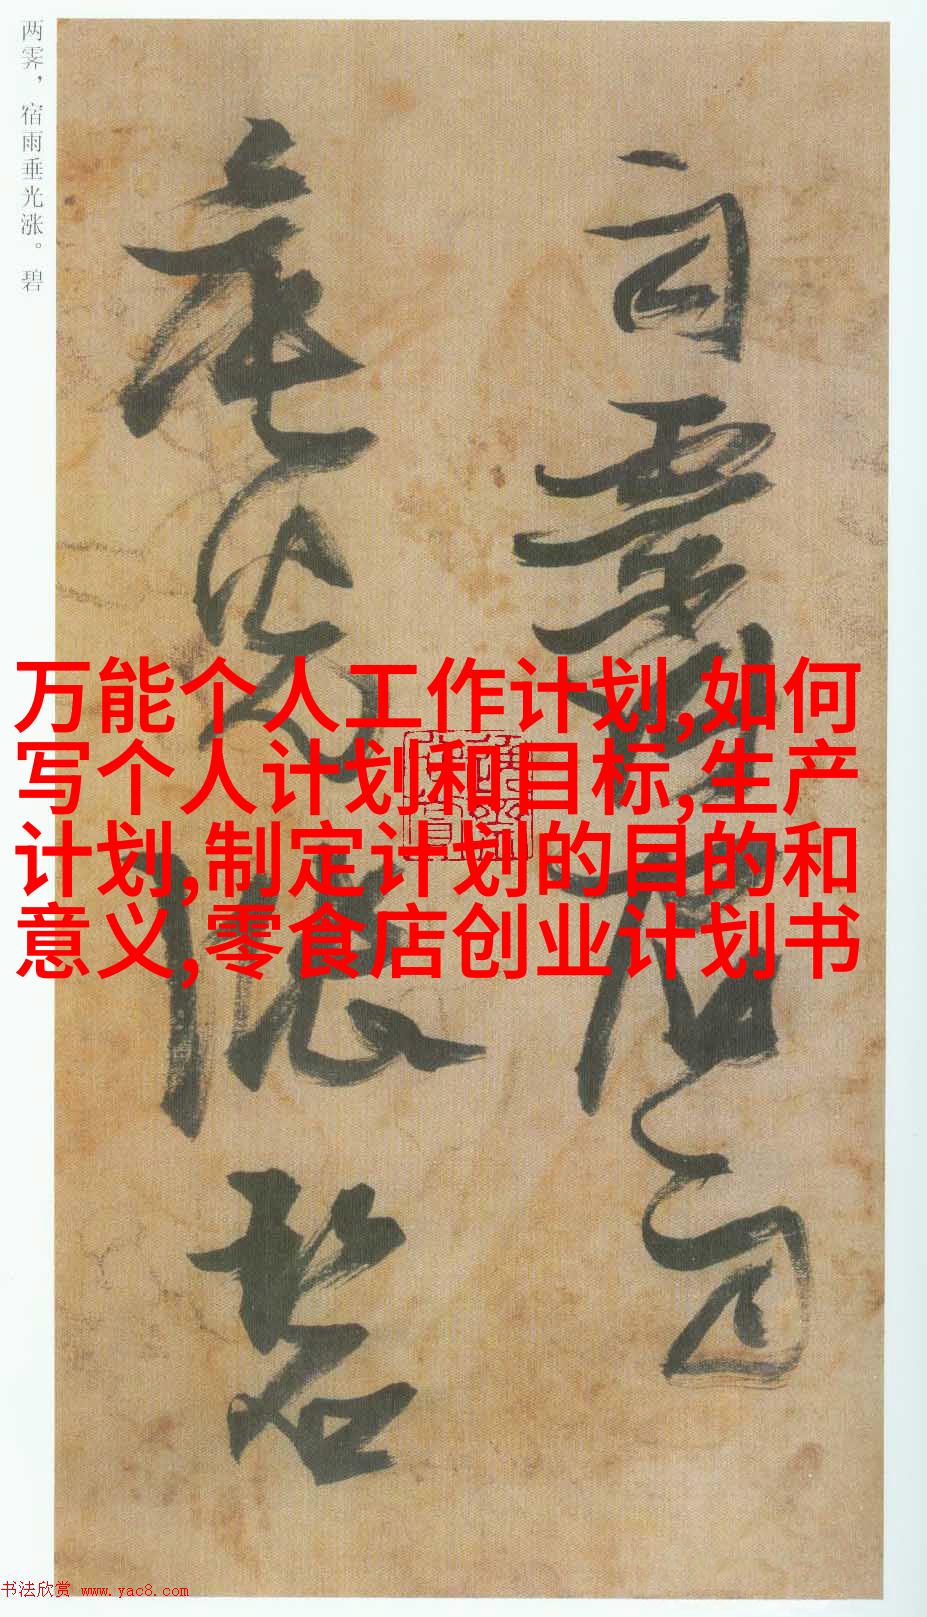 两霁宿雨
垂光涨碧
两霁，宿雨垂光涨。碧
万能个人工作计划,如何
写个人计划和目标,生产
计划,制定计划的目的和
意义,零食店创业计划书
书法欣赏 www.yac8.com